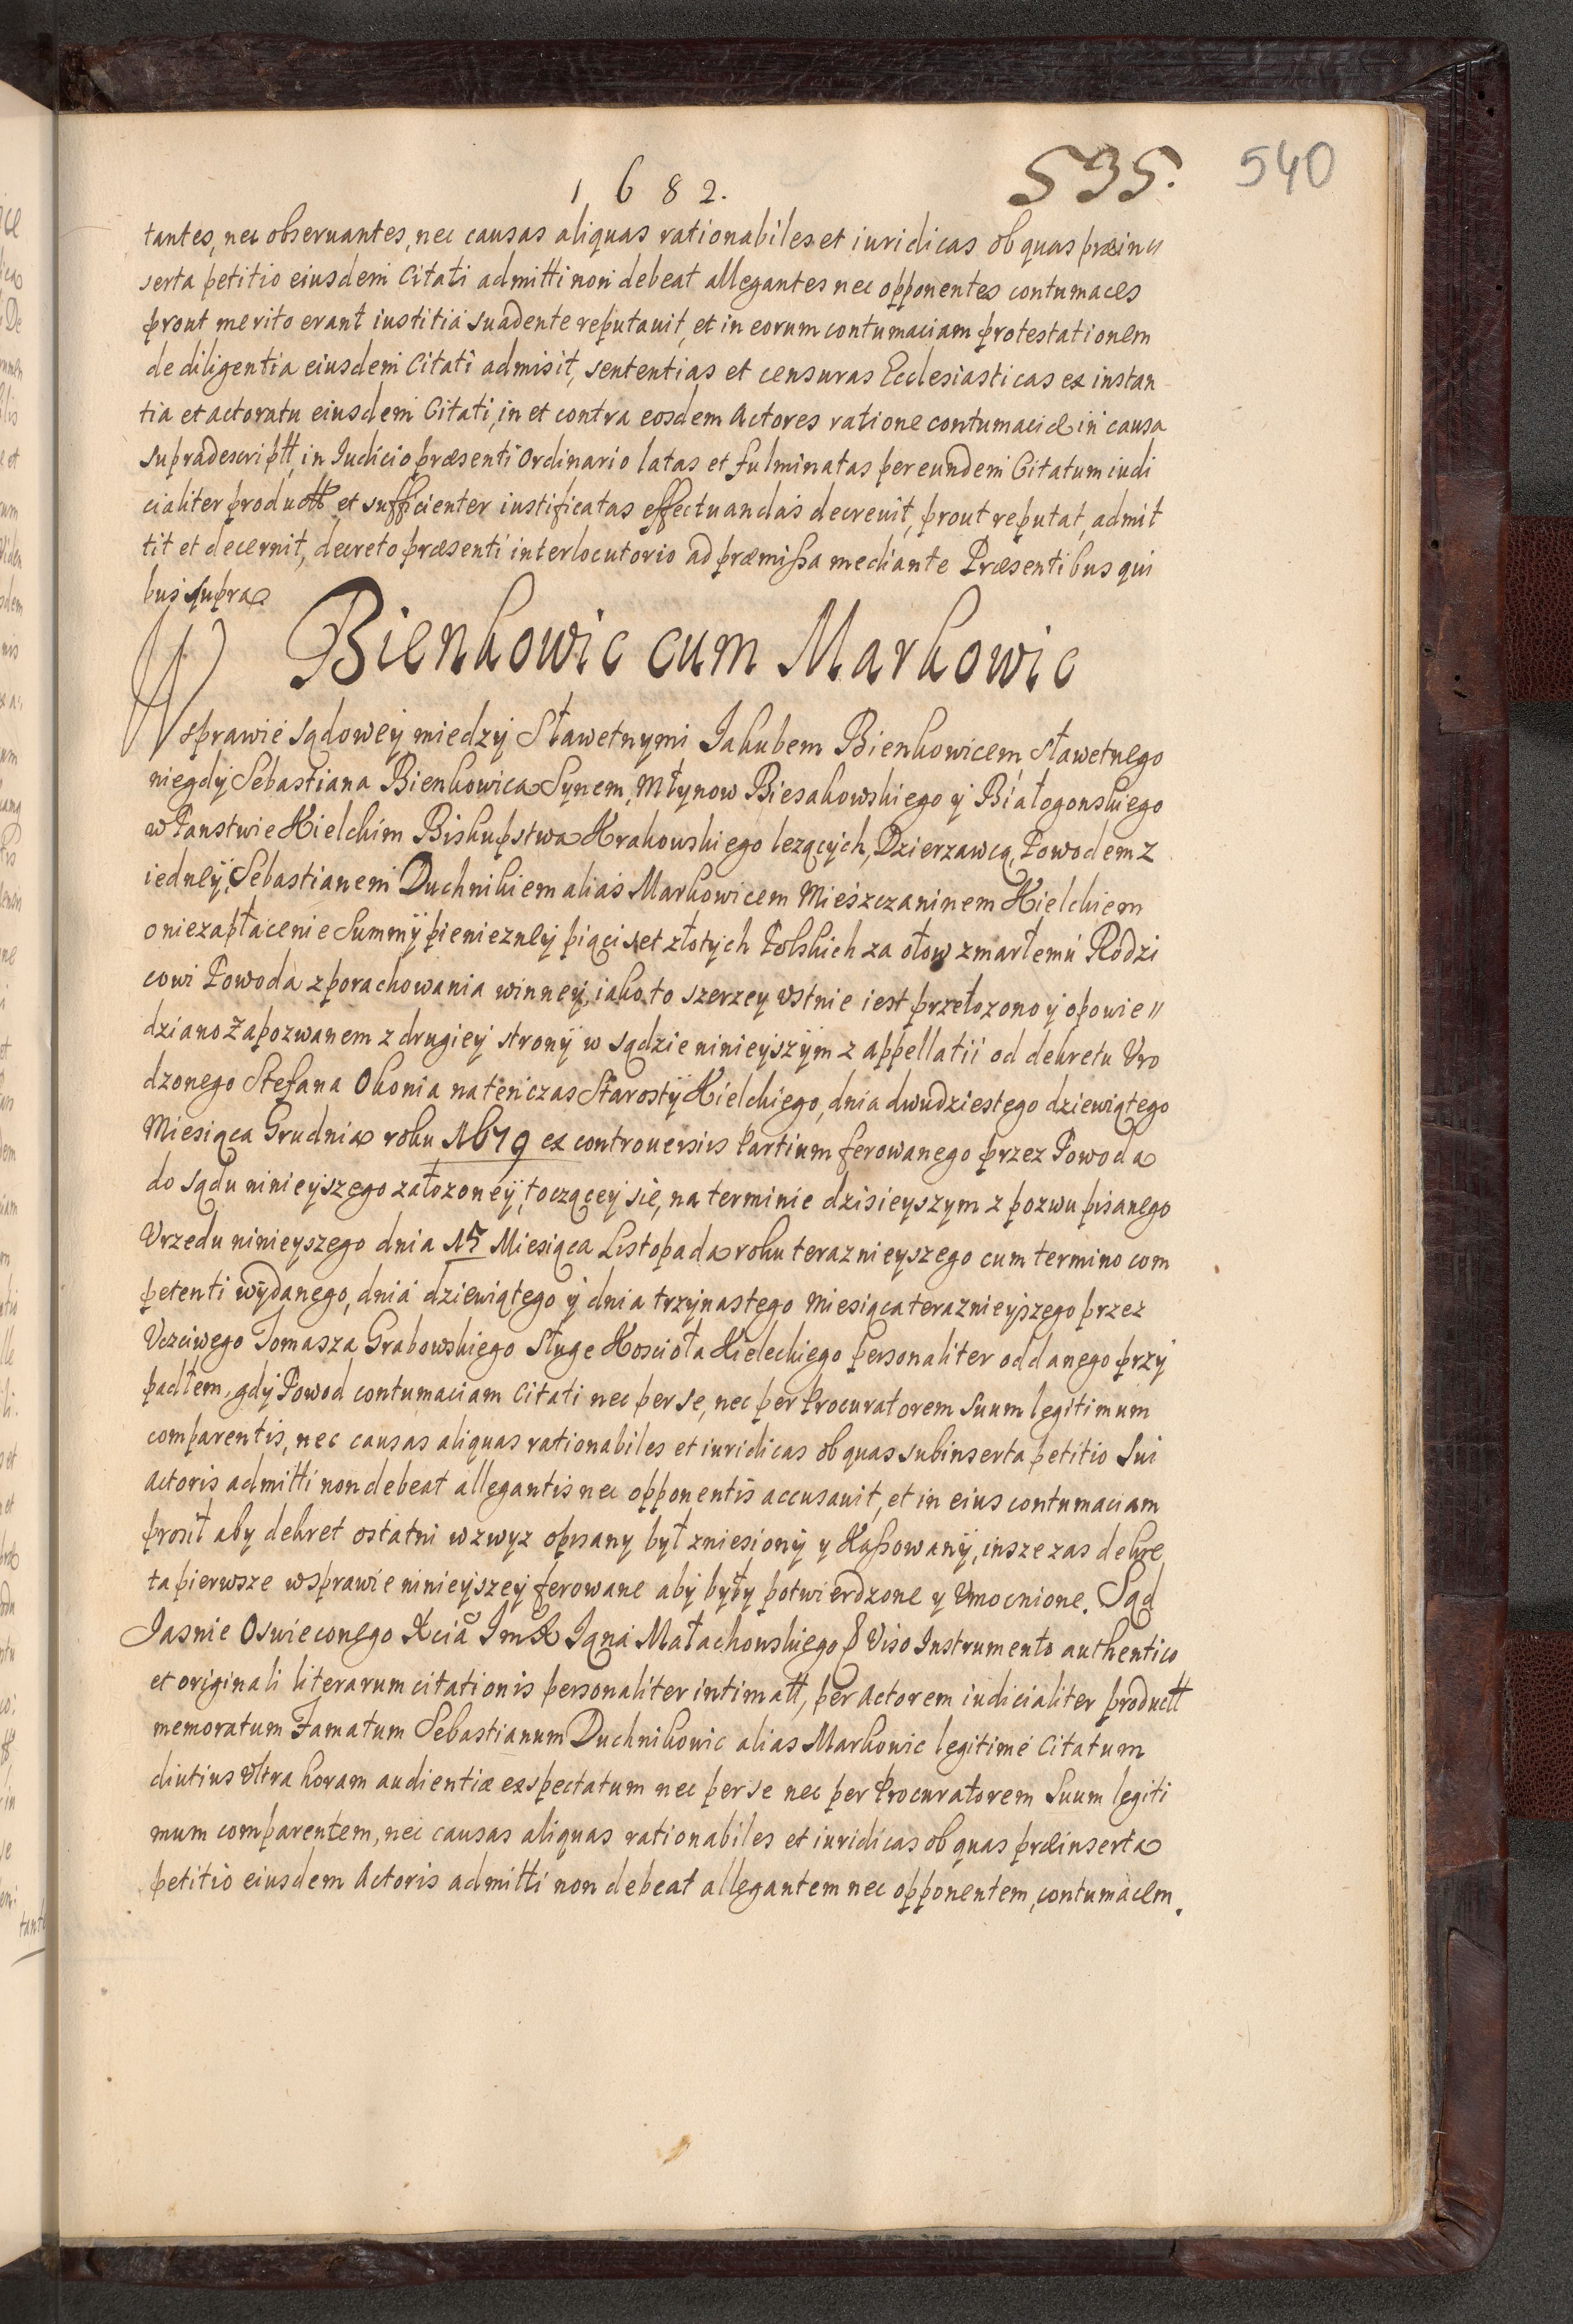 1682.
535.
540
tantes, nec obseruantes, nec causas aliquas rationabiles et iuridicas ob quas præin〃
serta petitio eiusdem Citati admitti non debeat allegantes nec opponentes contumaces
prout merito erant iustitia suadente reputauit, et in eorum contumaciam protestationem
de diligentia eiusdem Citati admisit, sententias et censuras Ecclesiasticas ex instan
tia et actoratu eiusdem Citati, in et contra eosdem Actores ratione contumaciæ in causa
supradescriptt, in Iudicio præsenti Ordinario latas et fulminatas per eundem Citatum iudi
cialiter productt et sufficienter iustificatas effectuandas decreuit, prout reputat, admit
tit et decernit, decreto præsenti interlocutorio ad præmissa mediante Præsentibus qui
bus supra
Bienkowic cum Markowic
W sprawie sądowey miedzy Sławetnymi Iakubem Bienkowicem Sławetnego
niegdy Sebastiana Bienkowica Synem, Młynow Biesakowskiego y Białogonskiego
w Panstwie Kielckim Biskupstwa Krakowskiego lezących, Dzierzawcą, Powodem z
iedney, Sebastianem Duchnikiem alias Markowicem Mieszczaninem Kielckiem
o niezapłacenie Summy pieniezney piąciset złotych Polskich za ołow zmarłemu Rodzi
cowi Powoda z porachowania winney, iako to szerzey vstnie iest przełozono y opowie〃
dziano Zapozwanem z drugiey strony w sądzie ninieyszym z appellatii od dekretu Vro
dzonego Stefana Okonia natenczas Starosty Kielckiego, dnia dwudziestego dziewiątego
Miesiąca Grudnia roku 1679 ex controuersiis Partium ferowanego przez Powoda
do sądu ninieyszego załozoney, toczącey sie, na terminie dzisieyszym z pozwu pisanego
Vrzedu ninieyszego dnia 15 Miesiąca Listopada roku teraznieyszego cum termino com
petenti wydanego, dnia dziewiątego y dnia trzynastego Miesiąca teraznieyszego przez
Vczciwego Tomasza Grabowskiego Sługe Koscioła Kieleckiego personaliter oddanego przy
padłem, gdy Powod contumaciam Citati nec per se, nec per Procuratorem Suum legitimum
comparentis, nec causas aliquas rationabiles et iuridicas ob quas subinserta petitio Sui
Actoris admitti non debeat allegantis nec opponentis accusauit, et in eius contumaciam
prosił aby dekret ostatni wzwyz opisany był zniesiony y Kassowany, insze zas dekre
ta pierwsze w sprawie ninieyszey ferowane aby były potwierdzone y Vmocnione. Sąd
Iasnie Oswieconego Xcia Imści Iana Małachowskiego Viso Instrumento authentico
et originali literarum citationis personaliter intimatt, per Actorem iudicialiter productt
memoratum Famatum Sebastianum Duchnikowic alias Markowic legitime Citatum
diutius vltra horam audientiæ exspectatum nec per se nec per Procuratorem Suum legiti
mum comparentem, nec causas aliquas rationabiles et iuridicas ob quas præinserta
petitio eiusdem Actoris admitti non debeat allegantem nec opponentem, contumacem.